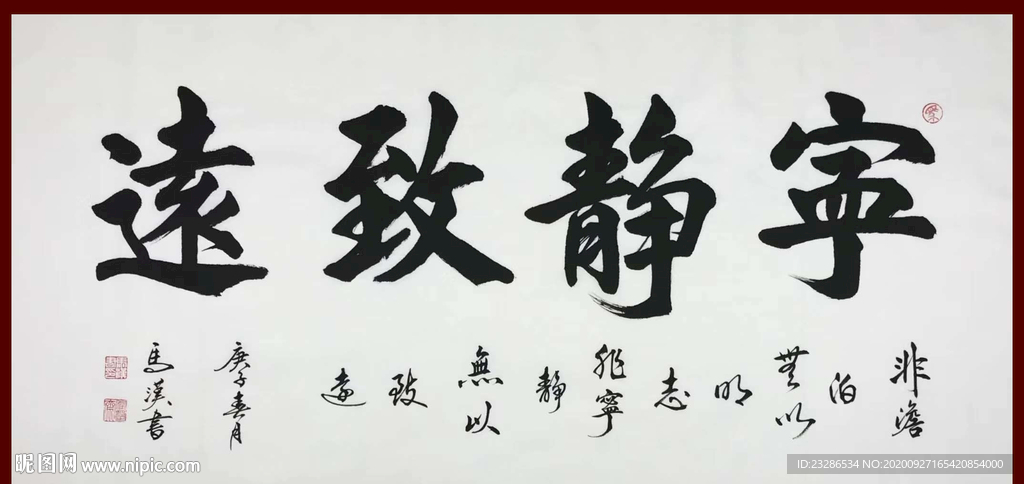 寧静致遠
非澹泊無以明志非寧静無以致遠
庚子春月
馬漢書
昵图网 www.nipic.com
ID:23286534 NO:20200927165420854000